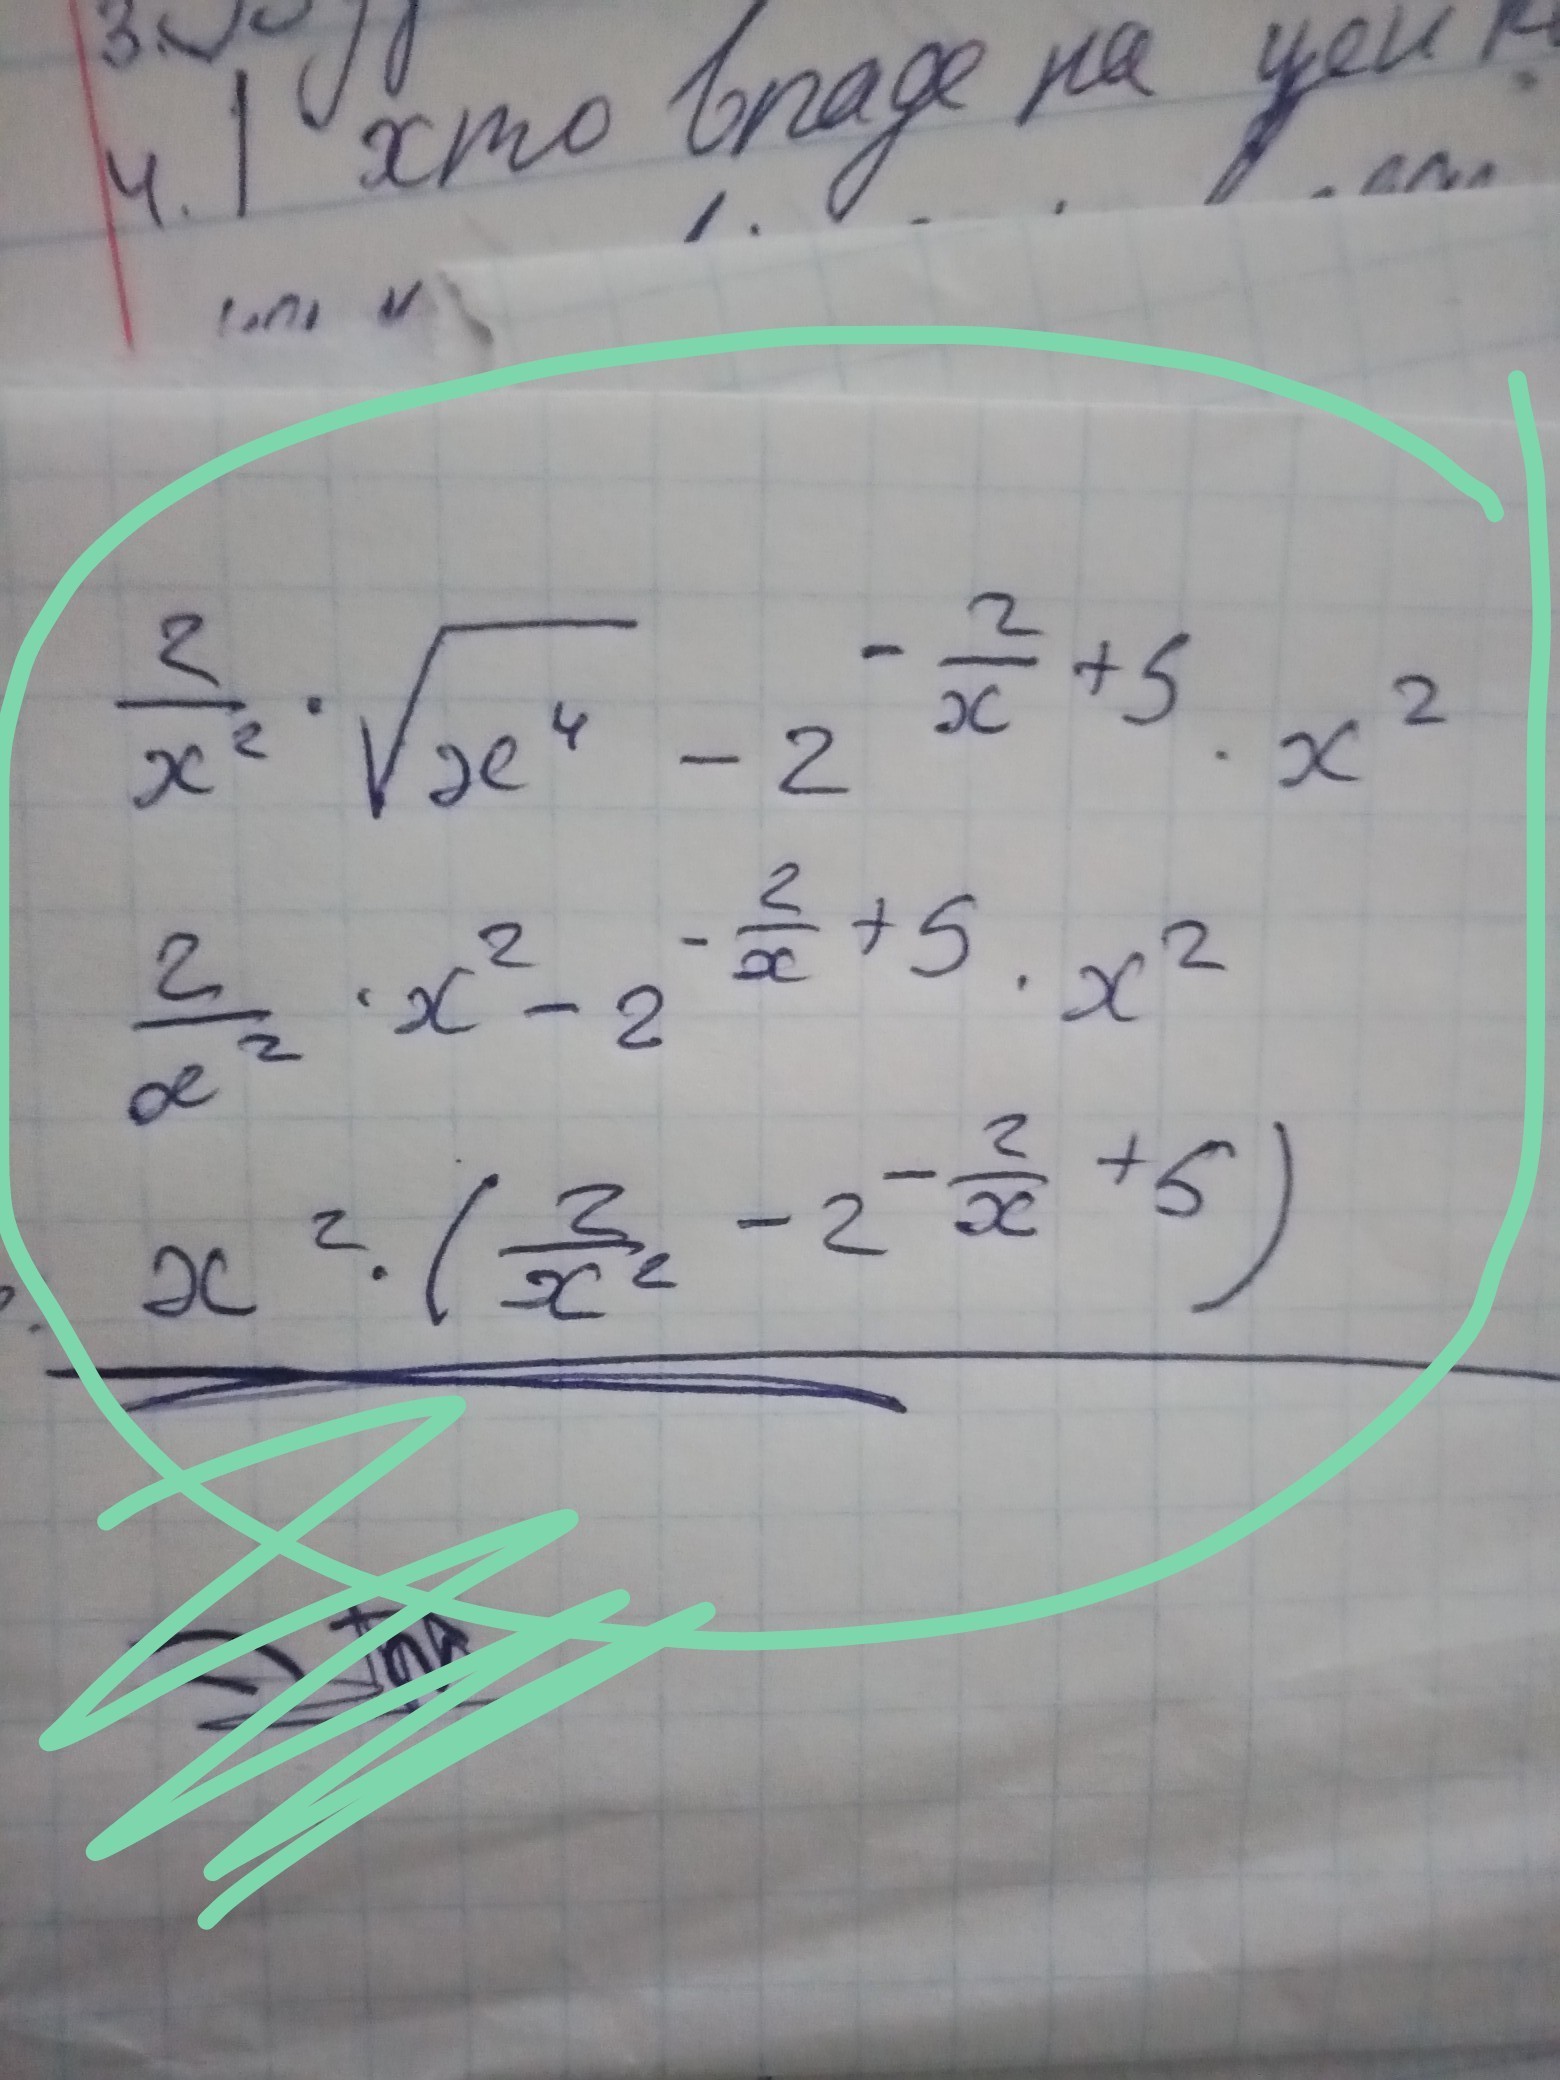 3.
4. І хто впаде на цеи
\frac{2}{x^2} \cdot \sqrt{x^4} - 2^{-\frac{2}{x}+5} \cdot x^2
\frac{2}{x^2} \cdot x^2 - 2^{-\frac{2}{x}+5} \cdot x^2
x^2 \cdot (\frac{2}{x^2} - 2^{-\frac{2}{x}+5})